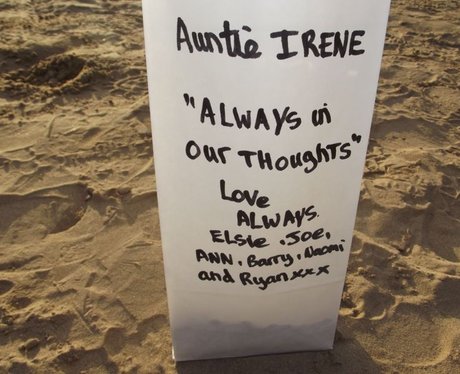 Auntie IRENE
"ALWAYS in
OUR THOUGHTS"
LOVE
ALWAYS.
ELSIE . JOE .
ANN . Barry . Naomi
and Ryan xxx